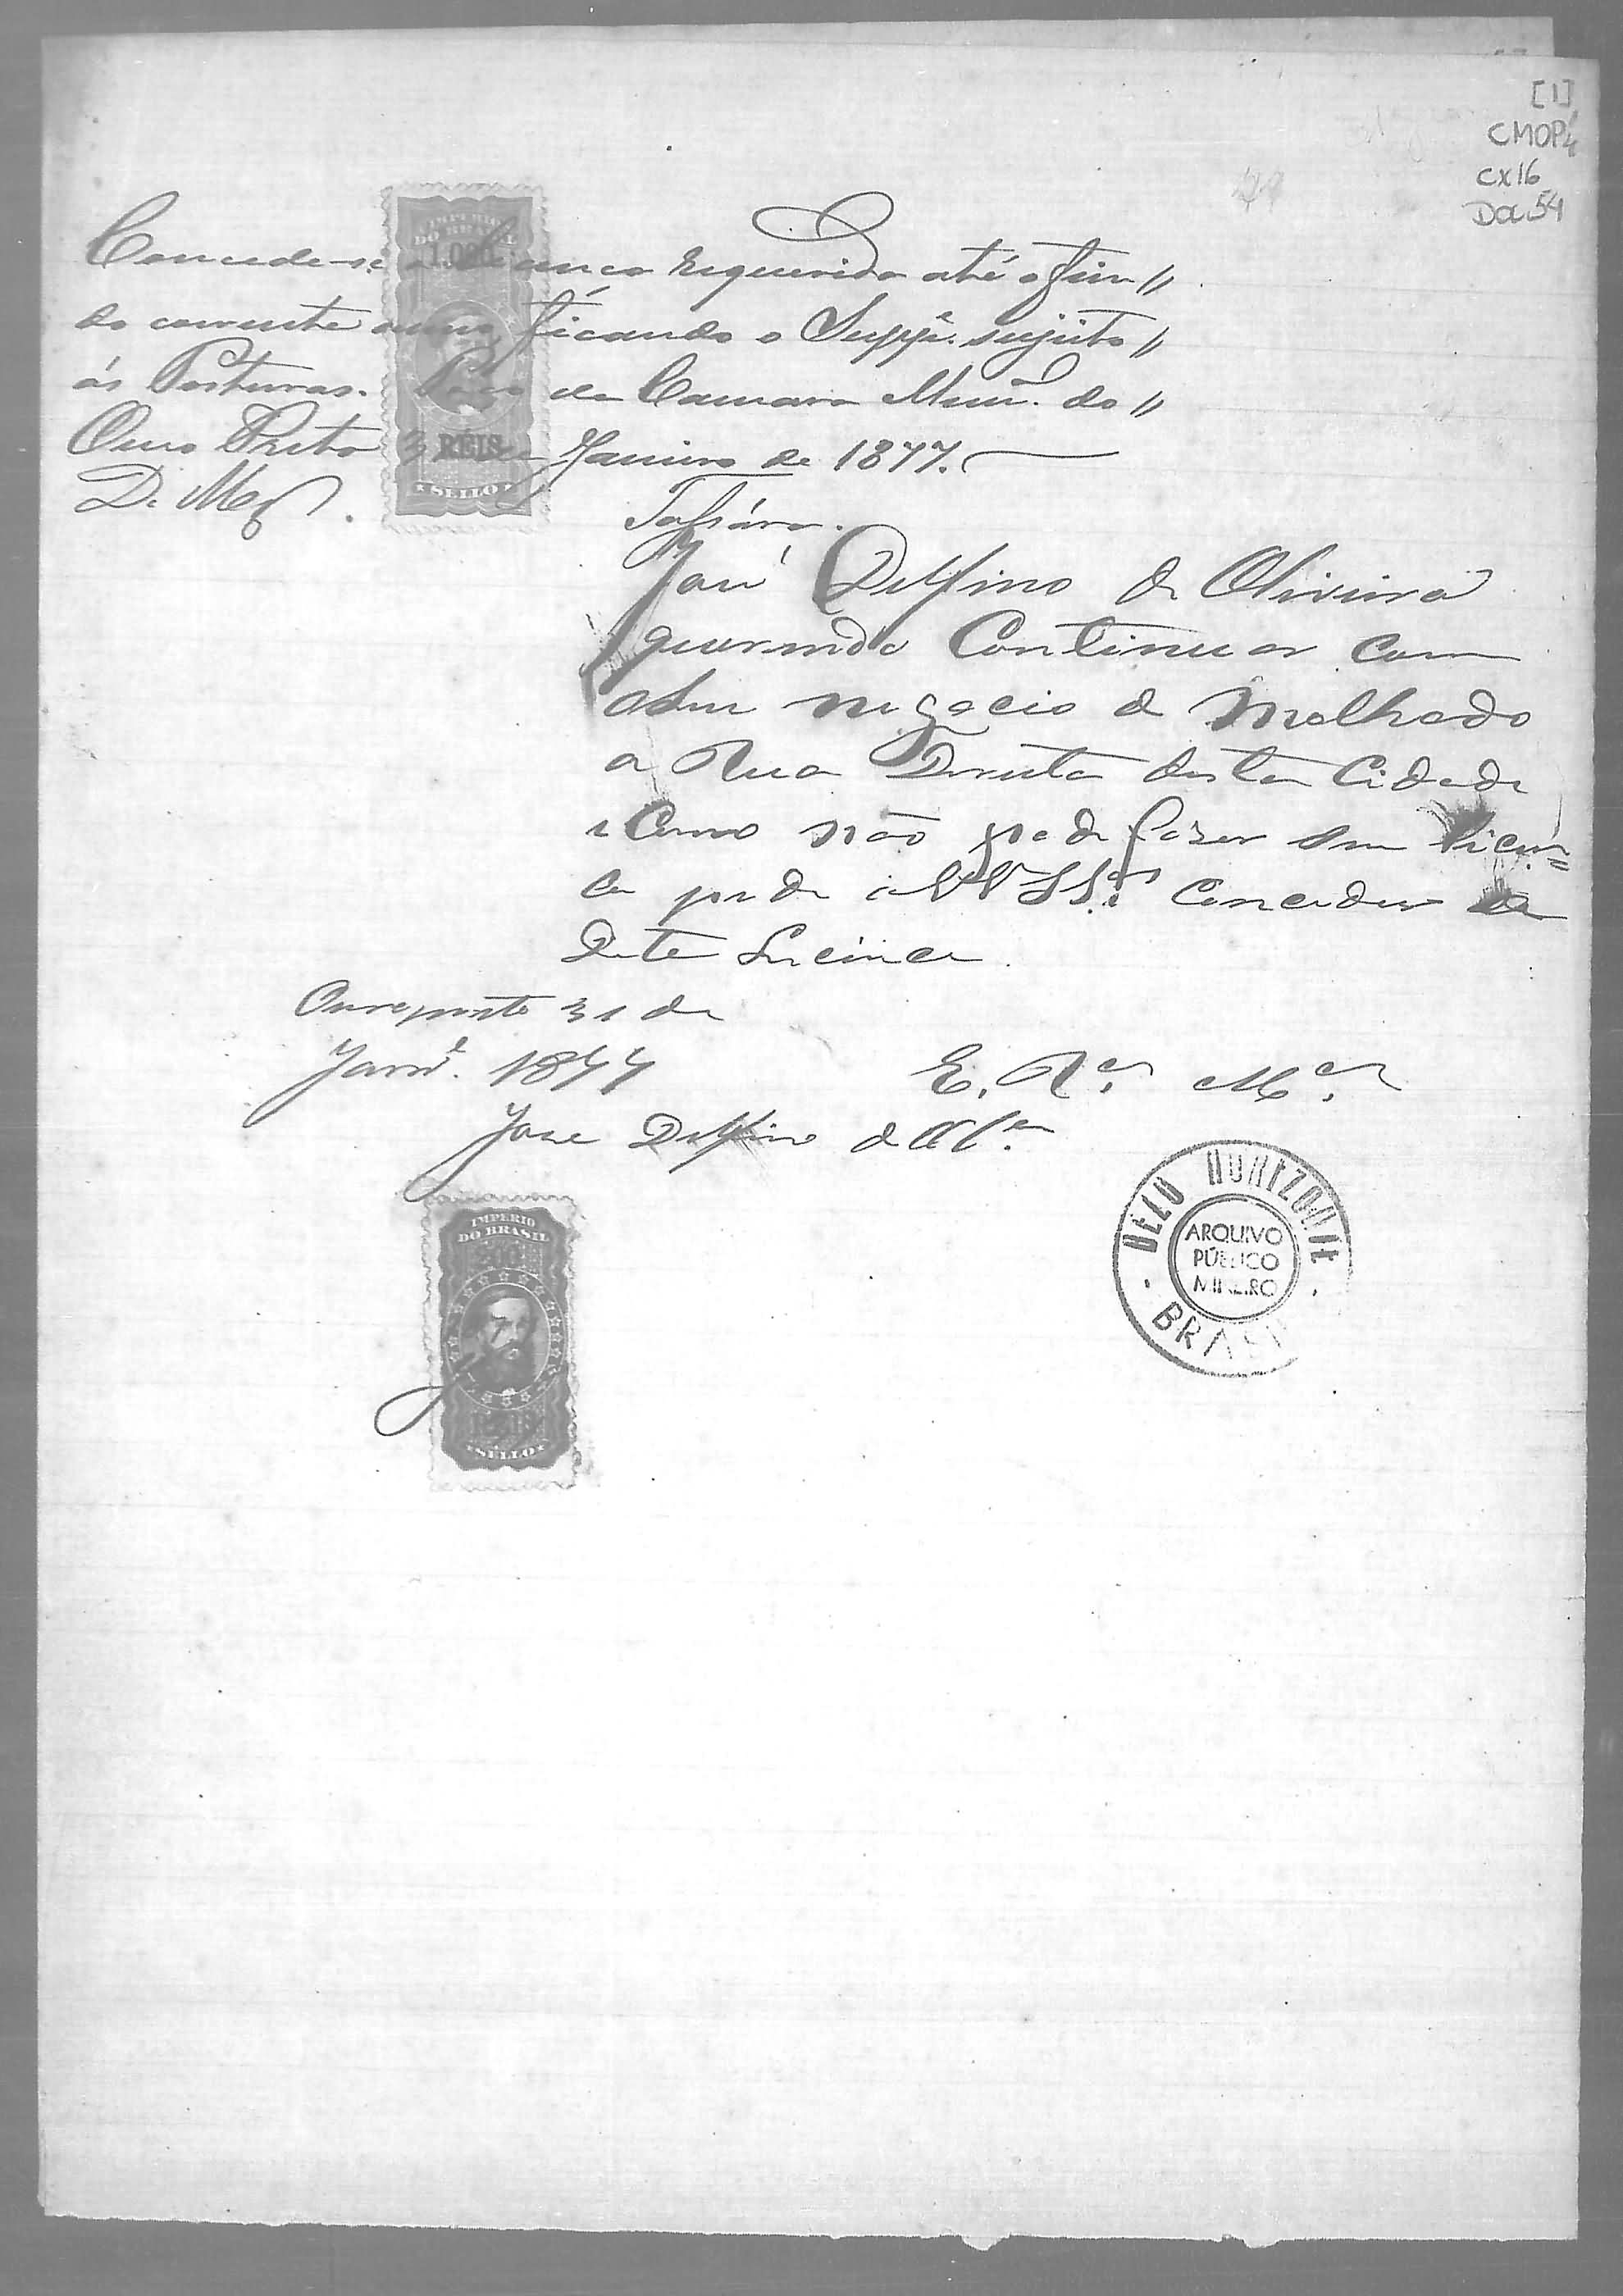 [1]
CMOP
cx16
Doc 54
Concede-se a licença requerida até o fim //
do corrente anno, ficando o Suppe. sujeito //
ás Posturas. Paço da Camara Mun. do //
Ouro Preto 31 de Janeiro de 1877.
IMPERIO
DO BRASIL
1.000
RÉIS
SELLO
José Delfino de Oliveira
querendo Continuar Com
o Seu negocio de Molhado
a Rua Direita desta Cidade
e Como não pode faser sem licen=
ca pede a VV SS.as Conceder
dita Licença
Ouro preto 31 de
Janrº. 1877
E. R.a M.ce
Jose Delfino de Olra.
IMPERIO
DO BRASIL
SELLO
BELO HORIZONTE
ARQUIVO
PÚBLICO
MINEIRO
BRASIL